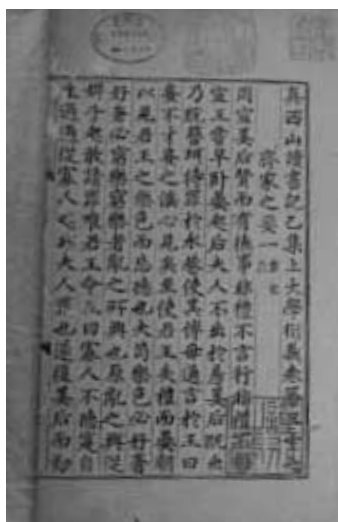 真西山讀書記乙集上大學衍義卷
齊家之要一
周宣姜后賢而有德事非禮不言行非禮不動
宣王嘗早卧晏起后夫人不出於房姜后既出
乃脫簪珥待罪於永巷使其傅母通言於王曰
妾不才妾之淫心見矣至使君王失禮而晏朝
以見君王之樂色而忘德也夫苟樂色必好奢
好奢必窮樂窮樂者亂之所興也原亂之興從
婢子起敢請罪唯君王命王曰寡人不德寔自
生過過從寡人起非夫人罪也遂復姜后而勤